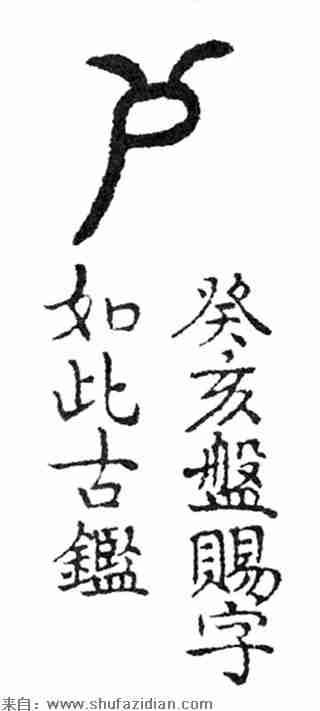 癸亥盤賜字
如此古鑑
来自：www.shufazidian.com